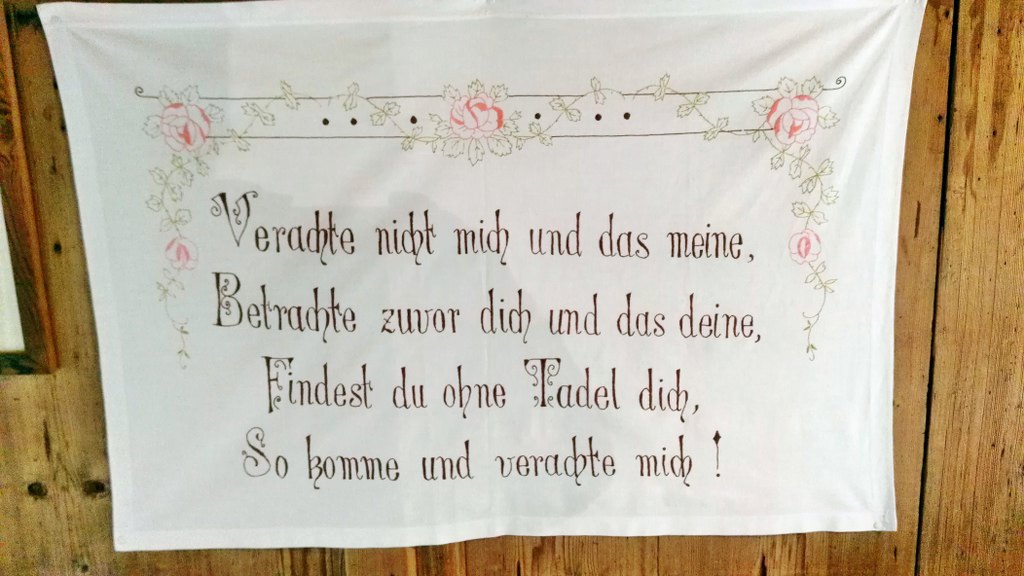 Verachte nicht mich und das meine,
Betrachte zuvor dich und das deine,
Findest du ohne Tadel dich,
So komme und verachte mich !